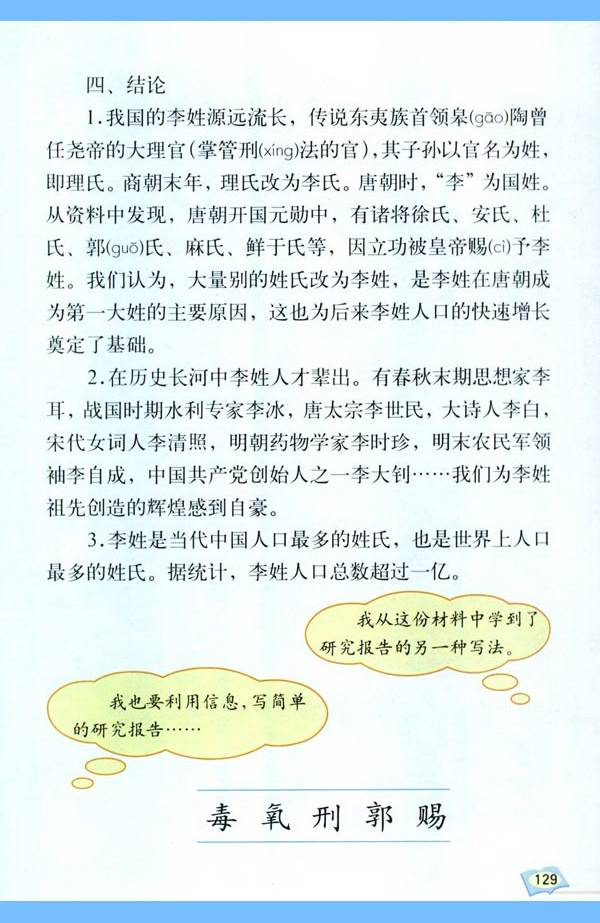 四、结论
1.我国的李姓源远流长，传说东夷族首领皋(gāo)陶曾
任尧帝的大理官(掌管刑(xíng)法的官)，其子孙以官名为姓，
即理氏。商朝末年，理氏改为李氏。唐朝时，“李”为国姓。
从资料中发现，唐朝开国元勋中，有诸将徐氏、安氏、杜
氏、郭(guō)氏、麻氏、鲜于氏等，因立功被皇帝赐(cì)予李
姓。我们认为，大量别的姓氏改为李姓，是李姓在唐朝成
为第一大姓的主要原因，这也为后来李姓人口的快速增长
奠定了基础。
2.在历史长河中李姓人才辈出。有春秋末期思想家李
耳，战国时期水利专家李冰，唐太宗李世民，大诗人李白，
宋代女词人李清照，明朝药物学家李时珍，明末农民军领
袖李自成，中国共产党创始人之一李大钊……我们为李姓
祖先创造的辉煌感到自豪。
3.李姓是当代中国人口最多的姓氏，也是世界上人口
最多的姓氏。据统计，李姓人口总数超过一亿。
我从这份材料中学到了
研究报告的另一种写法。
我也要利用信息，写简单
的研究报告……
毒 氧 刑 郭 赐
129